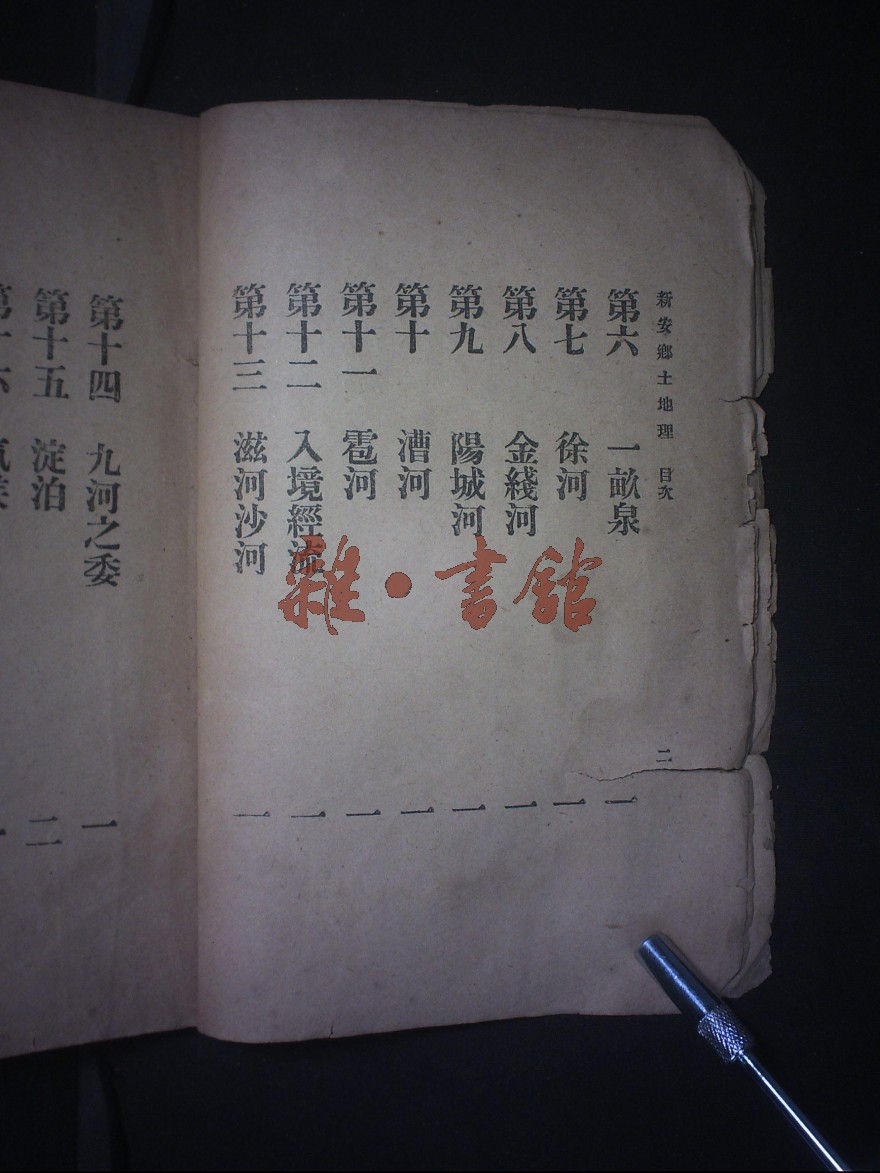 新安鄉土地理 目次 二
第六 一畝泉 一
第七 徐河 一
第八 金綫河 一
第九 陽城河 一
第十 漕河 一
第十一 雹河 一
第十二 入境經流 一
第十三 滋河沙河 一
第十四 九河之委 一
第十五 淀泊 二
雜·書館